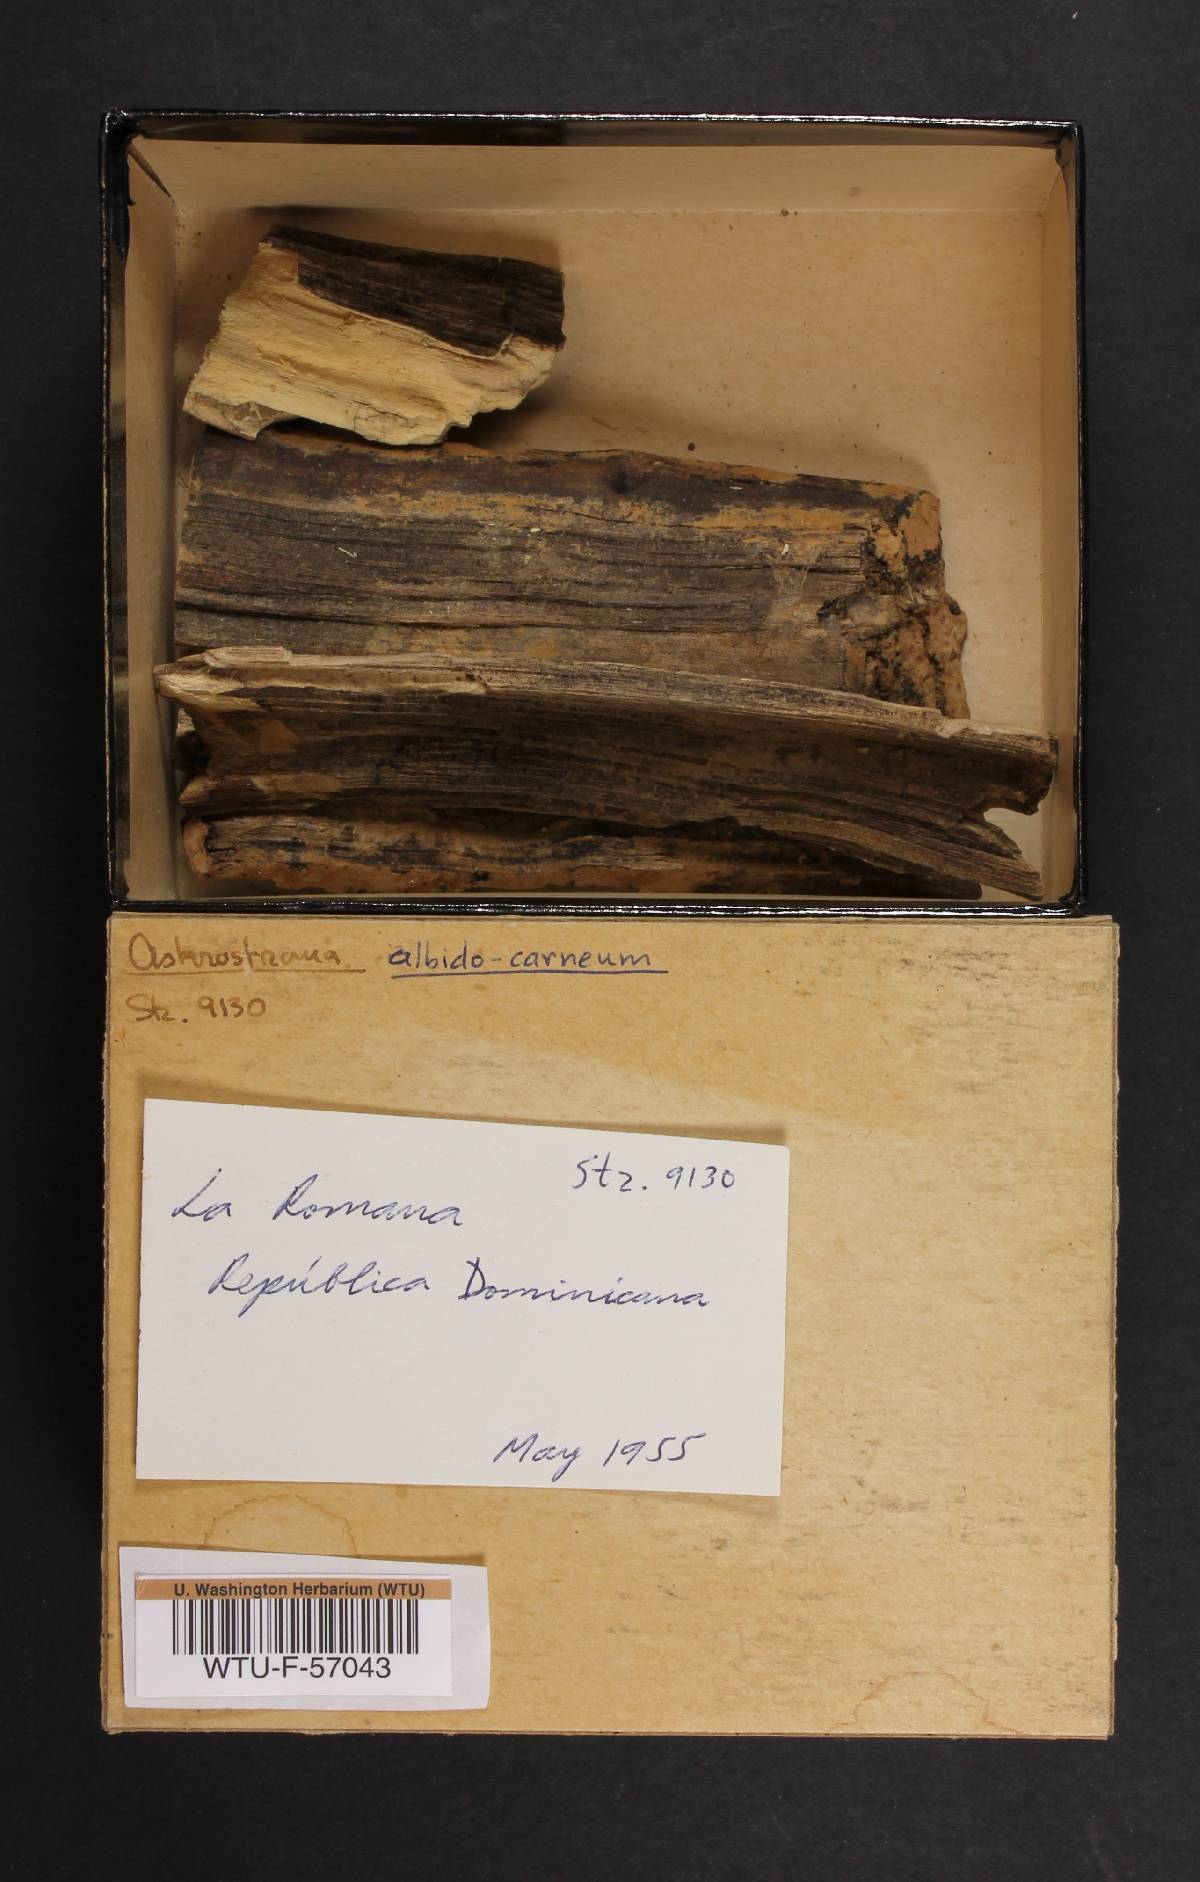 Asterostroma albido-carneum
Stz. 9130
Stz. 9130
La Romana
República Dominicana
May 1955
U. Washington Herbarium (WTU)
WTU-F-57043